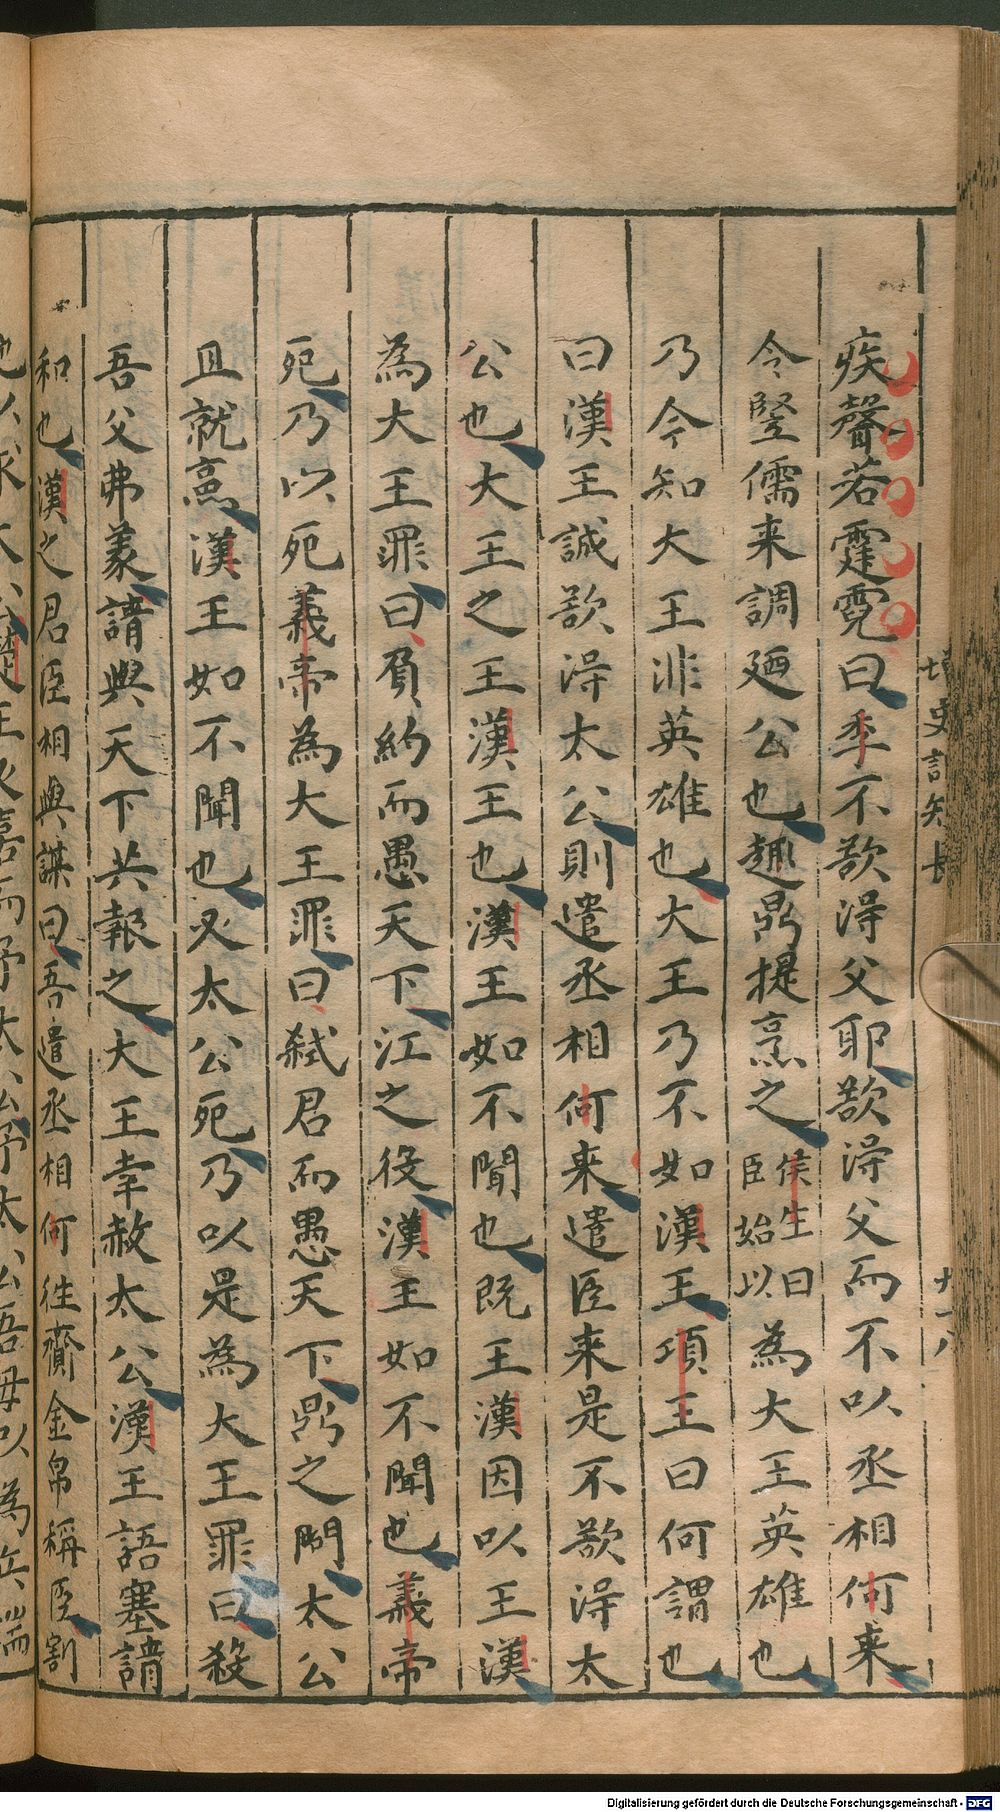 疾聲若霆霓曰季不欲淂父耶欲淂父而不以丞相何来
令豎儒来調廼公也趣鼎提烹之侯生曰臣始以為大王英雄也
乃今知大王非英雄也大王乃不如漢王項王曰何謂也
曰漢王誠欲淂太公則遣丞相何来遣臣来是不欲淂太
公也大王之王漢王也漢王如不聞也既王漢因以王漢
為大王罪曰負約而愚天下江之役漢王如不聞也義帝
死乃以死義帝為大王罪曰弑君而愚天下鼎之閗太公
且就烹漢王如不聞也又太公死乃以是為大王罪曰殺
吾父弗義請與天下共報之大王幸赦太公漢王語塞請
和也漢之君臣相與謀曰吾遣丞相何徃齎金帛稱臣割
史記
Digitalisierung gefördert durch die Deutsche Forschungsgemeinschaft - DFG